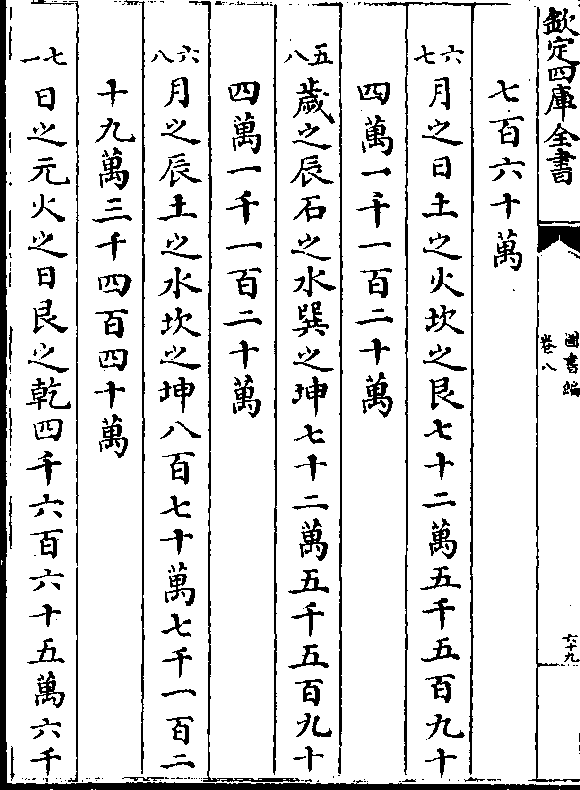 欽定四庫全書
圖書編
卷八
六十九
七百六十萬
六七 月之日土之火坎之艮七十二萬五千五百九十
四萬一千一百二十萬
五八 歲之辰石之水巽之坤七十二萬五千五百九十
四萬一千一百二十萬
六八 月之辰土之水坎之坤八百七十萬七千一百二
十九萬三千四百四十萬
七一 日之元火之日艮之乾四千六百六十五萬六千